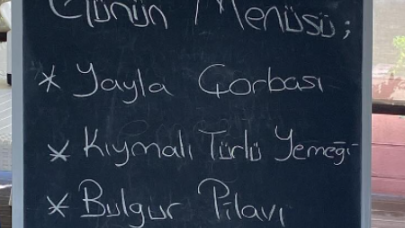 Günün Menüsü;
* Yayla Çorbası
* Kıymalı Türlü Yemeği
* Bulgur Pilavı